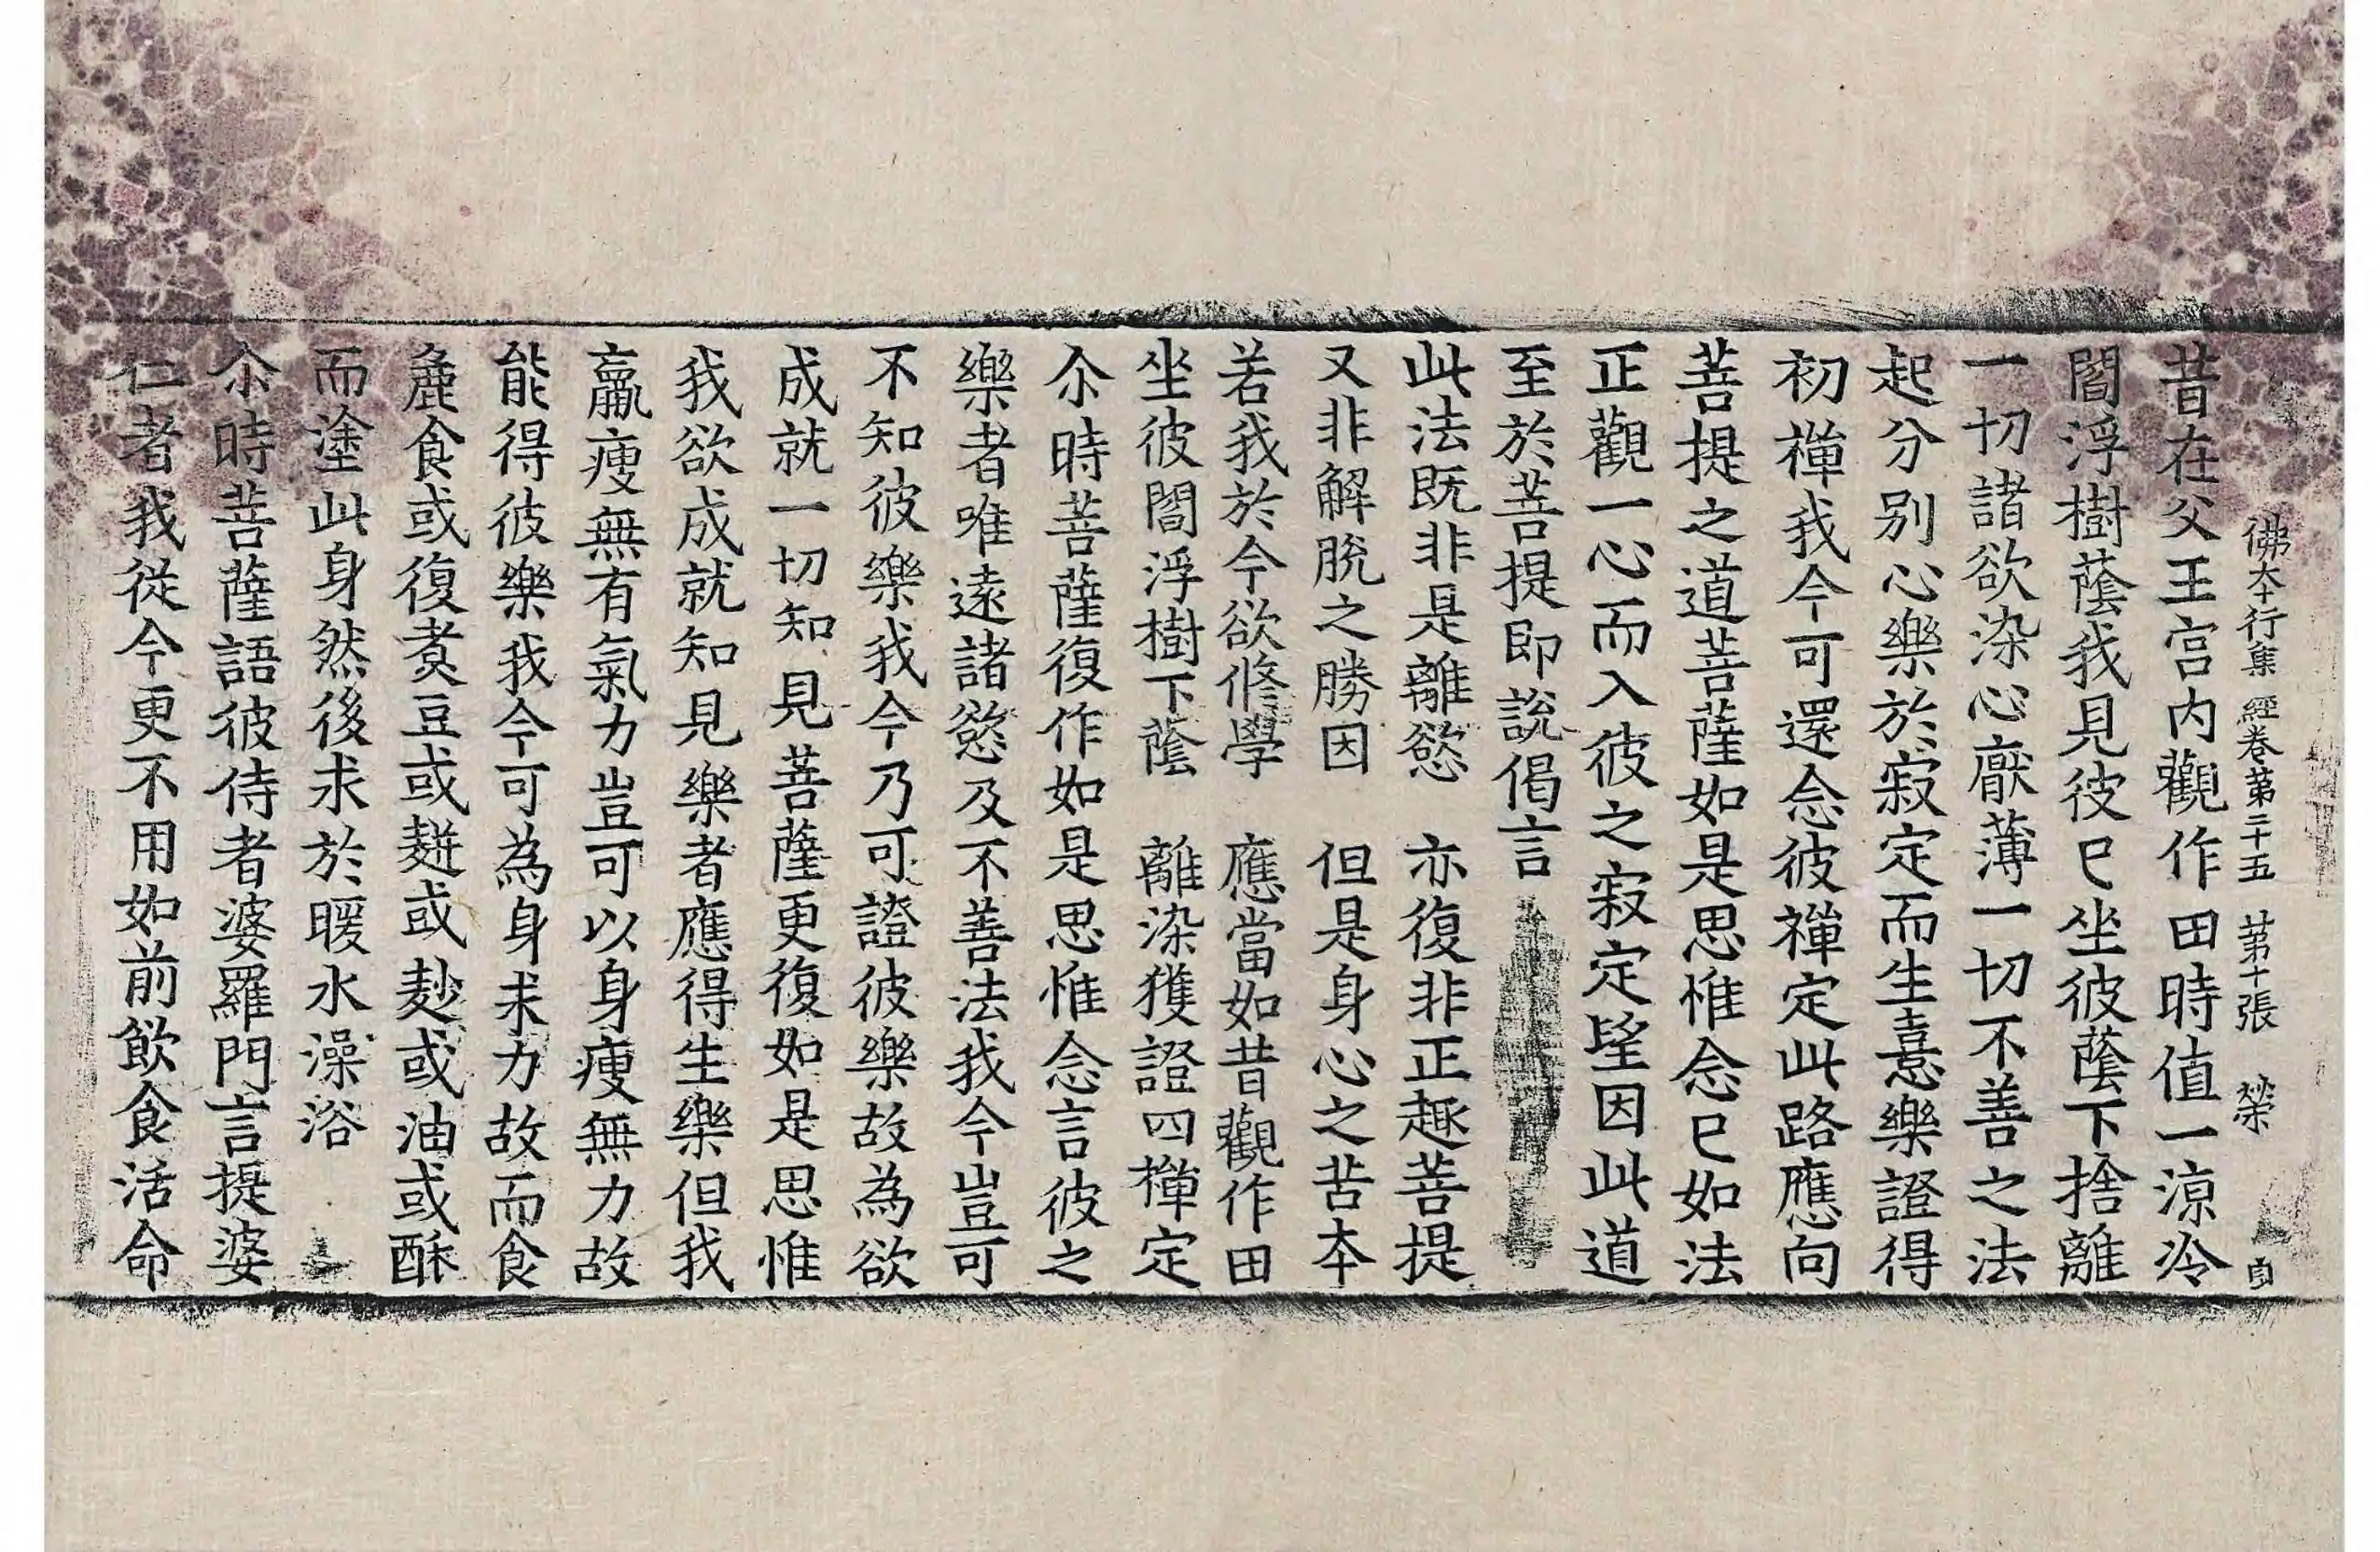 佛本行集經卷第二十五 第十張 榮 自
昔在父王宮内觀作田時值一涼冷
閻浮樹蔭我見彼已坐彼蔭下捨離
一切諸欲染心厭薄一切不善之法
起分別心樂於寂定而生憙樂證得
初禪我今可還念彼禪定此路應向
菩提之道菩薩如是思惟念已如法
正觀一心而入彼之寂定望因此道
至於菩提即說偈言
此法既非是離慾 亦復非正趣菩提
又非解脫之勝因 但是身心之苦本
若我於今欲修學 應當如昔觀作田
坐彼閻浮樹下蔭 離染獲證四禪定
尒時菩薩復作如是思惟念言彼之
樂者唯遠諸慾及不善法我今豈可
不知彼樂我今乃可證彼樂故為欲
成就一切知見菩薩更復如是思惟
我欲成就知見樂者應得生樂但我
羸瘦無有氣力豈可以身瘦無力故
能得彼樂我今可為身求力故而食
麁食或復煑豆或䴵或麨或油或酥
而塗此身然後求於暖水澡浴
尒時菩薩語彼侍者婆羅門言提婆
仁者我從今更不用如前飲食活命